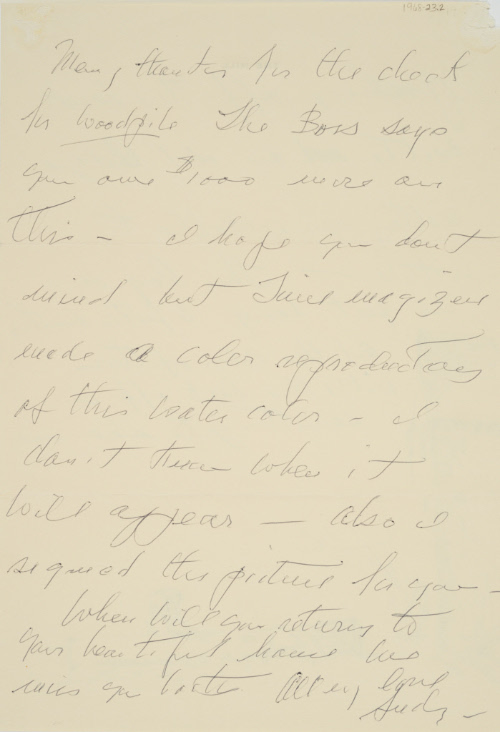 1968.232
Many thanks for the check
for Woodpile The Boss says
you owe $1000 more on
this — I hope you don't
mind but Time magazine
made a color reproduction
of this water color — I
don't know when it
will appear — also I
signed the picture for you —
When will you return to
your beautiful house we
miss you both All my love
Andy —